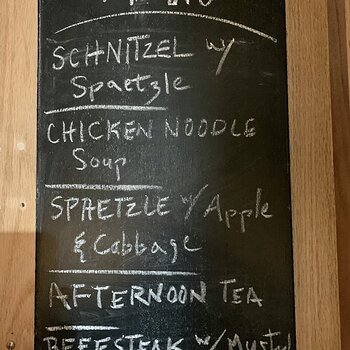 SCHNITZEL w/
Spaetzle
CHICKEN NOODLE
Soup
SPAETZLE w/ Apple
& Cabbage
AFTERNOON TEA
BEEFSTEAK w/